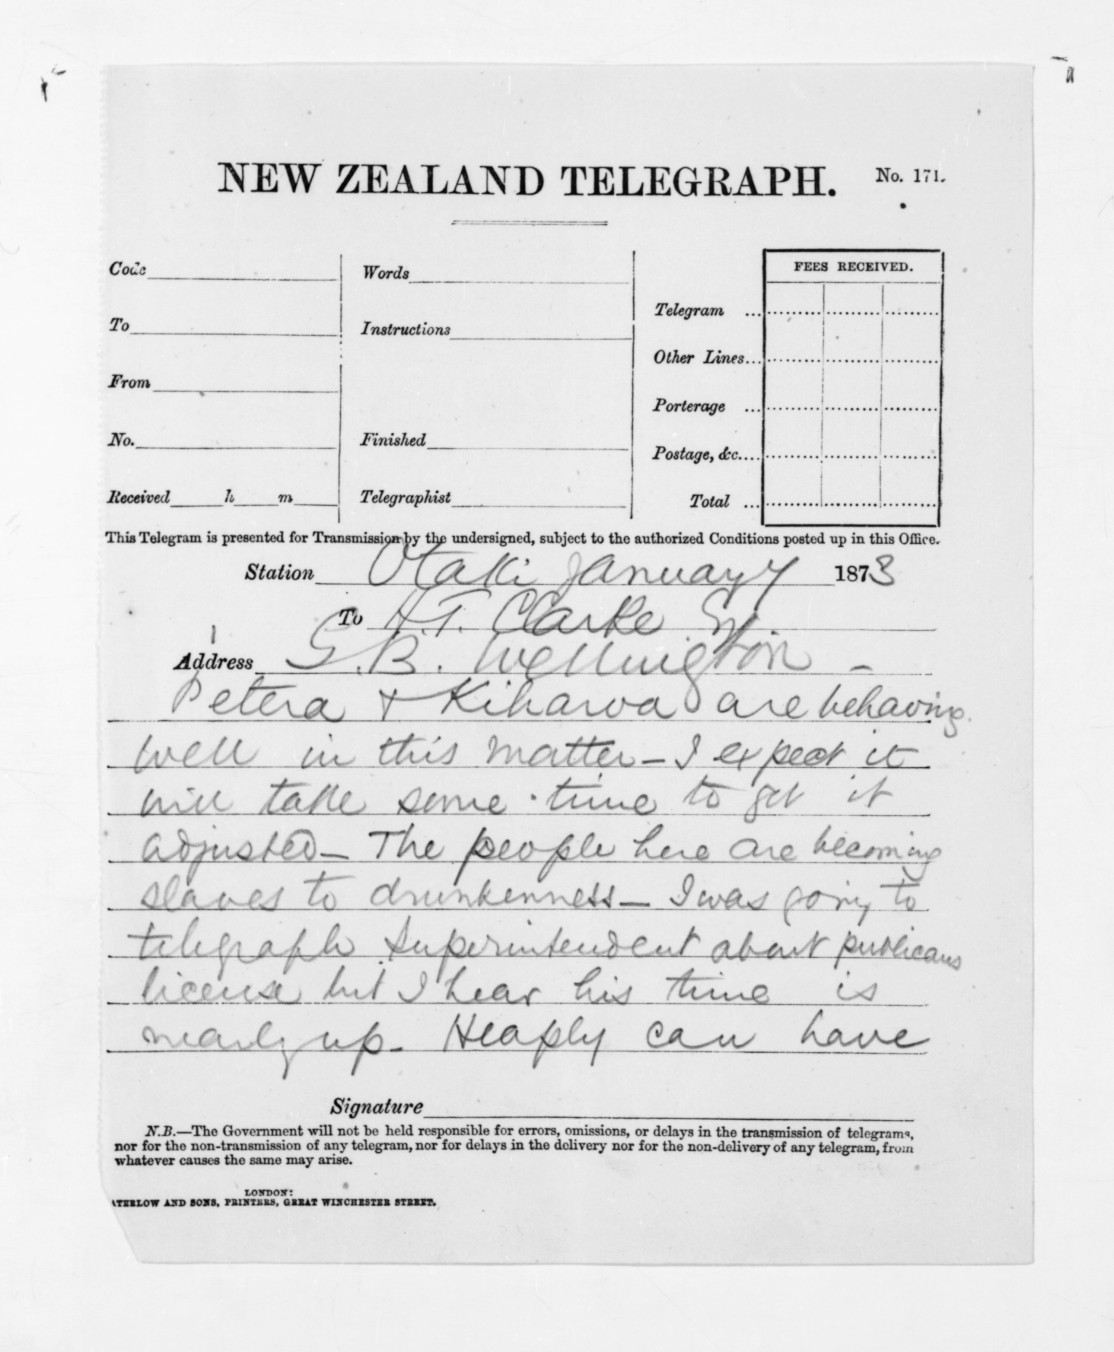 NEW ZEALAND TELEGRAPH. No. 171.
Code
To
From
No.
Received h m
Words
Instructions
Finished
Telegraphist
FEES RECEIVED.
Telegram ...
Other Lines...
Porterage ...
Postage, &c....
Total ...
This Telegram is presented for Transmission by the undersigned, subject to the authorized Conditions posted up in this Office.
Station Otaki January 7 1873
To H.T. Clarke
Address G.B. Wellington -
Petera + Kiharoa are behaving
well in this matter - I expect it
will take some time to get it
adjusted - The people here are becoming
slaves to drunkenness - I was going to
telegraph Superintendent about publicans
license but I hear his time is
nearly up - Heaply can have
Signature
N.B.—The Government will not be held responsible for errors, omissions, or delays in the transmission of telegrams,
nor for the non-transmission of any telegram, nor for delays in the delivery nor for the non-delivery of any telegram, from
whatever causes the same may arise.
LONDON:
ATERLOW AND SONS, PRINTERS, GREAT WINCHESTER STREET.